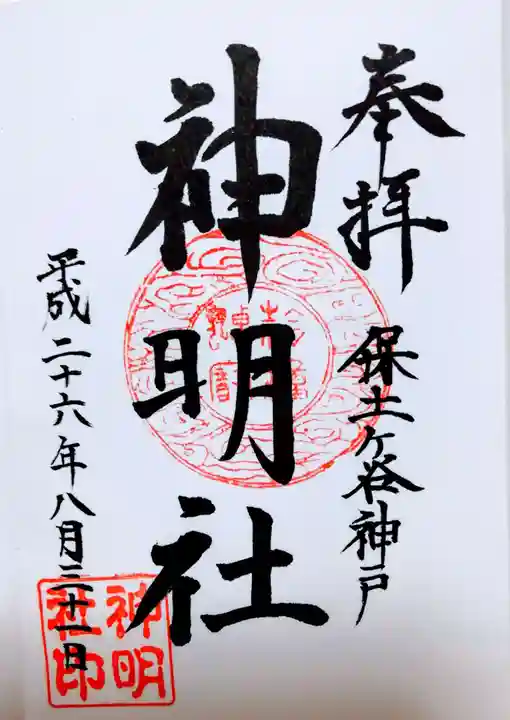 奉拝
保土ヶ谷神戸
神明社
平成二十六年八月三十一日
神明社印